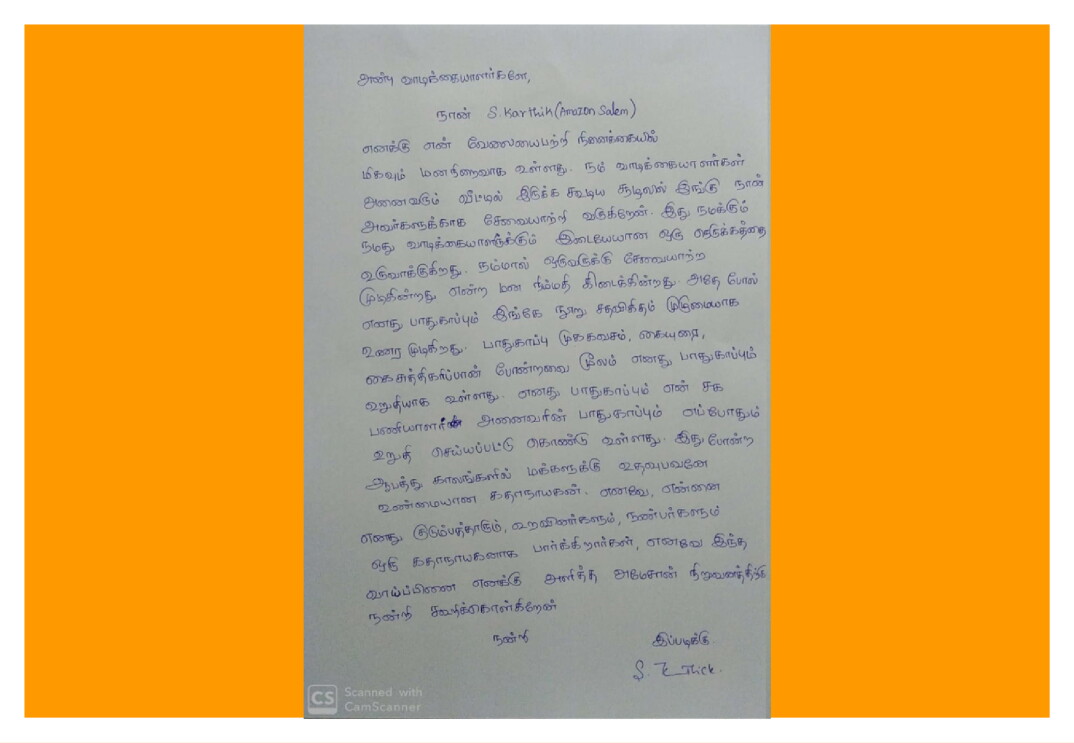 அன்பு வாடிக்கையாளர்களே,
நான் S. Karthik (Amazon Salem)
எனக்கு என் வேலையைபற்றி நினைக்கையில்
மிகவும் மனநிறைவாக உள்ளது. நம் வாடிக்கையாளர்கள்
அனைவரும் வீட்டில் இருக்க கூடிய சூழலில் இங்கு நான்
அவர்களுக்காக சேவையாற்றி வருகிறேன். இது நமக்கும்
நமது வாடிக்கையாளருக்கும் இடையேயான ஒரு நெருக்கத்தை
உருவாக்குகிறது. நம்மால் ஒருவருக்கு சேவையாற்ற
முடிகின்றது என்ற மன நிம்மதி கிடைக்கின்றது. அதே போல்
எனது பாதுகாப்பும் இங்கே நூறு சதவிகிதம் முழுமையாக
உணர முடிகிறது. பாதுகாப்பு முககவசம், கையுறை,
கை சுத்திகரிப்பான் போன்றவை மூலம் எனது பாதுகாப்பும்
உறுதியாக உள்ளது. எனது பாதுகாப்பும் என் சக
பணியாளர்கள் அனைவரின் பாதுகாப்பும் எப்போதும்
உறுதி செய்யப்பட்டு கொண்டு உள்ளது. இது போன்ற
ஆபத்து காலங்களில் மக்களுக்கு உதவுபவனே
உண்மையான கதாநாயகன். எனவே, என்னை
எனது குடும்பத்தாரும், உறவினர்களும், நண்பர்களும்
ஒரு கதாநாயகனாக பார்க்கிறார்கள், எனவே இந்த
வாய்ப்பினை எனக்கு அளித்த அமேசான் நிறுவனத்திற்கு
நன்றி கூறிக்கொள்கிறேன்
நன்றி இப்படிக்கு
S.
CS Scanned with
CamScanner